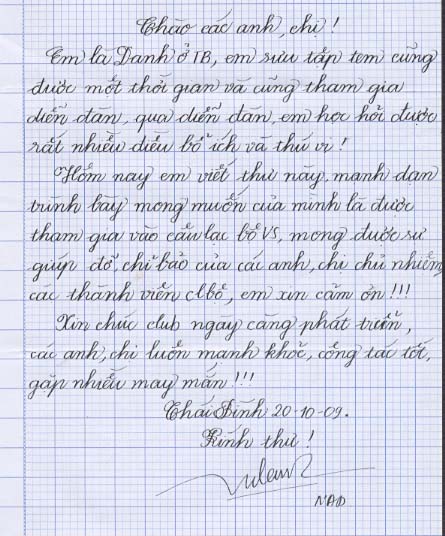 Chào các anh, chị !
Em là Danh ở TB, em sưu tập tem cũng
được một thời gian và cũng tham gia
diễn đàn, qua diễn đàn, em học hỏi được
rất nhiều điều bổ ích và thú vị !
Hôm nay em viết thư này, mạnh dạn
trình bày mong muốn của mình là được
tham gia vào câu lạc bộ VS, mong được sự
giúp đỡ, chỉ bảo của các anh, chị chủ nhiệm,
các thành viên clbộ, em xin cảm ơn !!!
Xin chúc club ngày càng phát triển,
các anh, chị luôn mạnh khỏe, công tác tốt,
gặp nhiều may mắn !!!
Thái Bình 20-10-09.
Kính thư !
NAD